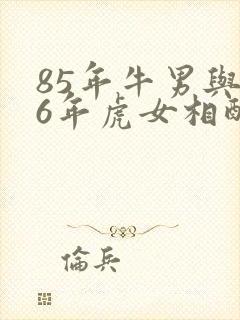 85年牛男與
6年虎女相
倫兵